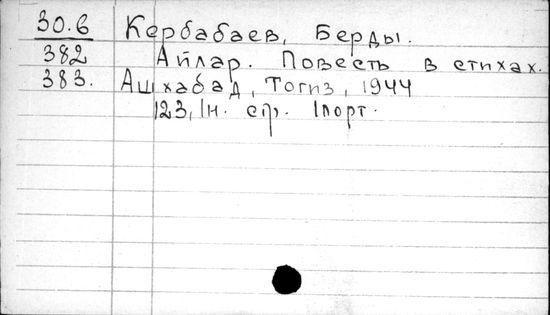 30.6 Кербабаев, Берды.
382 Айлар. Повесть в стихах.
383. Ашхабад, Тогиз, 1944
123, 1н. стр. 1 порт.